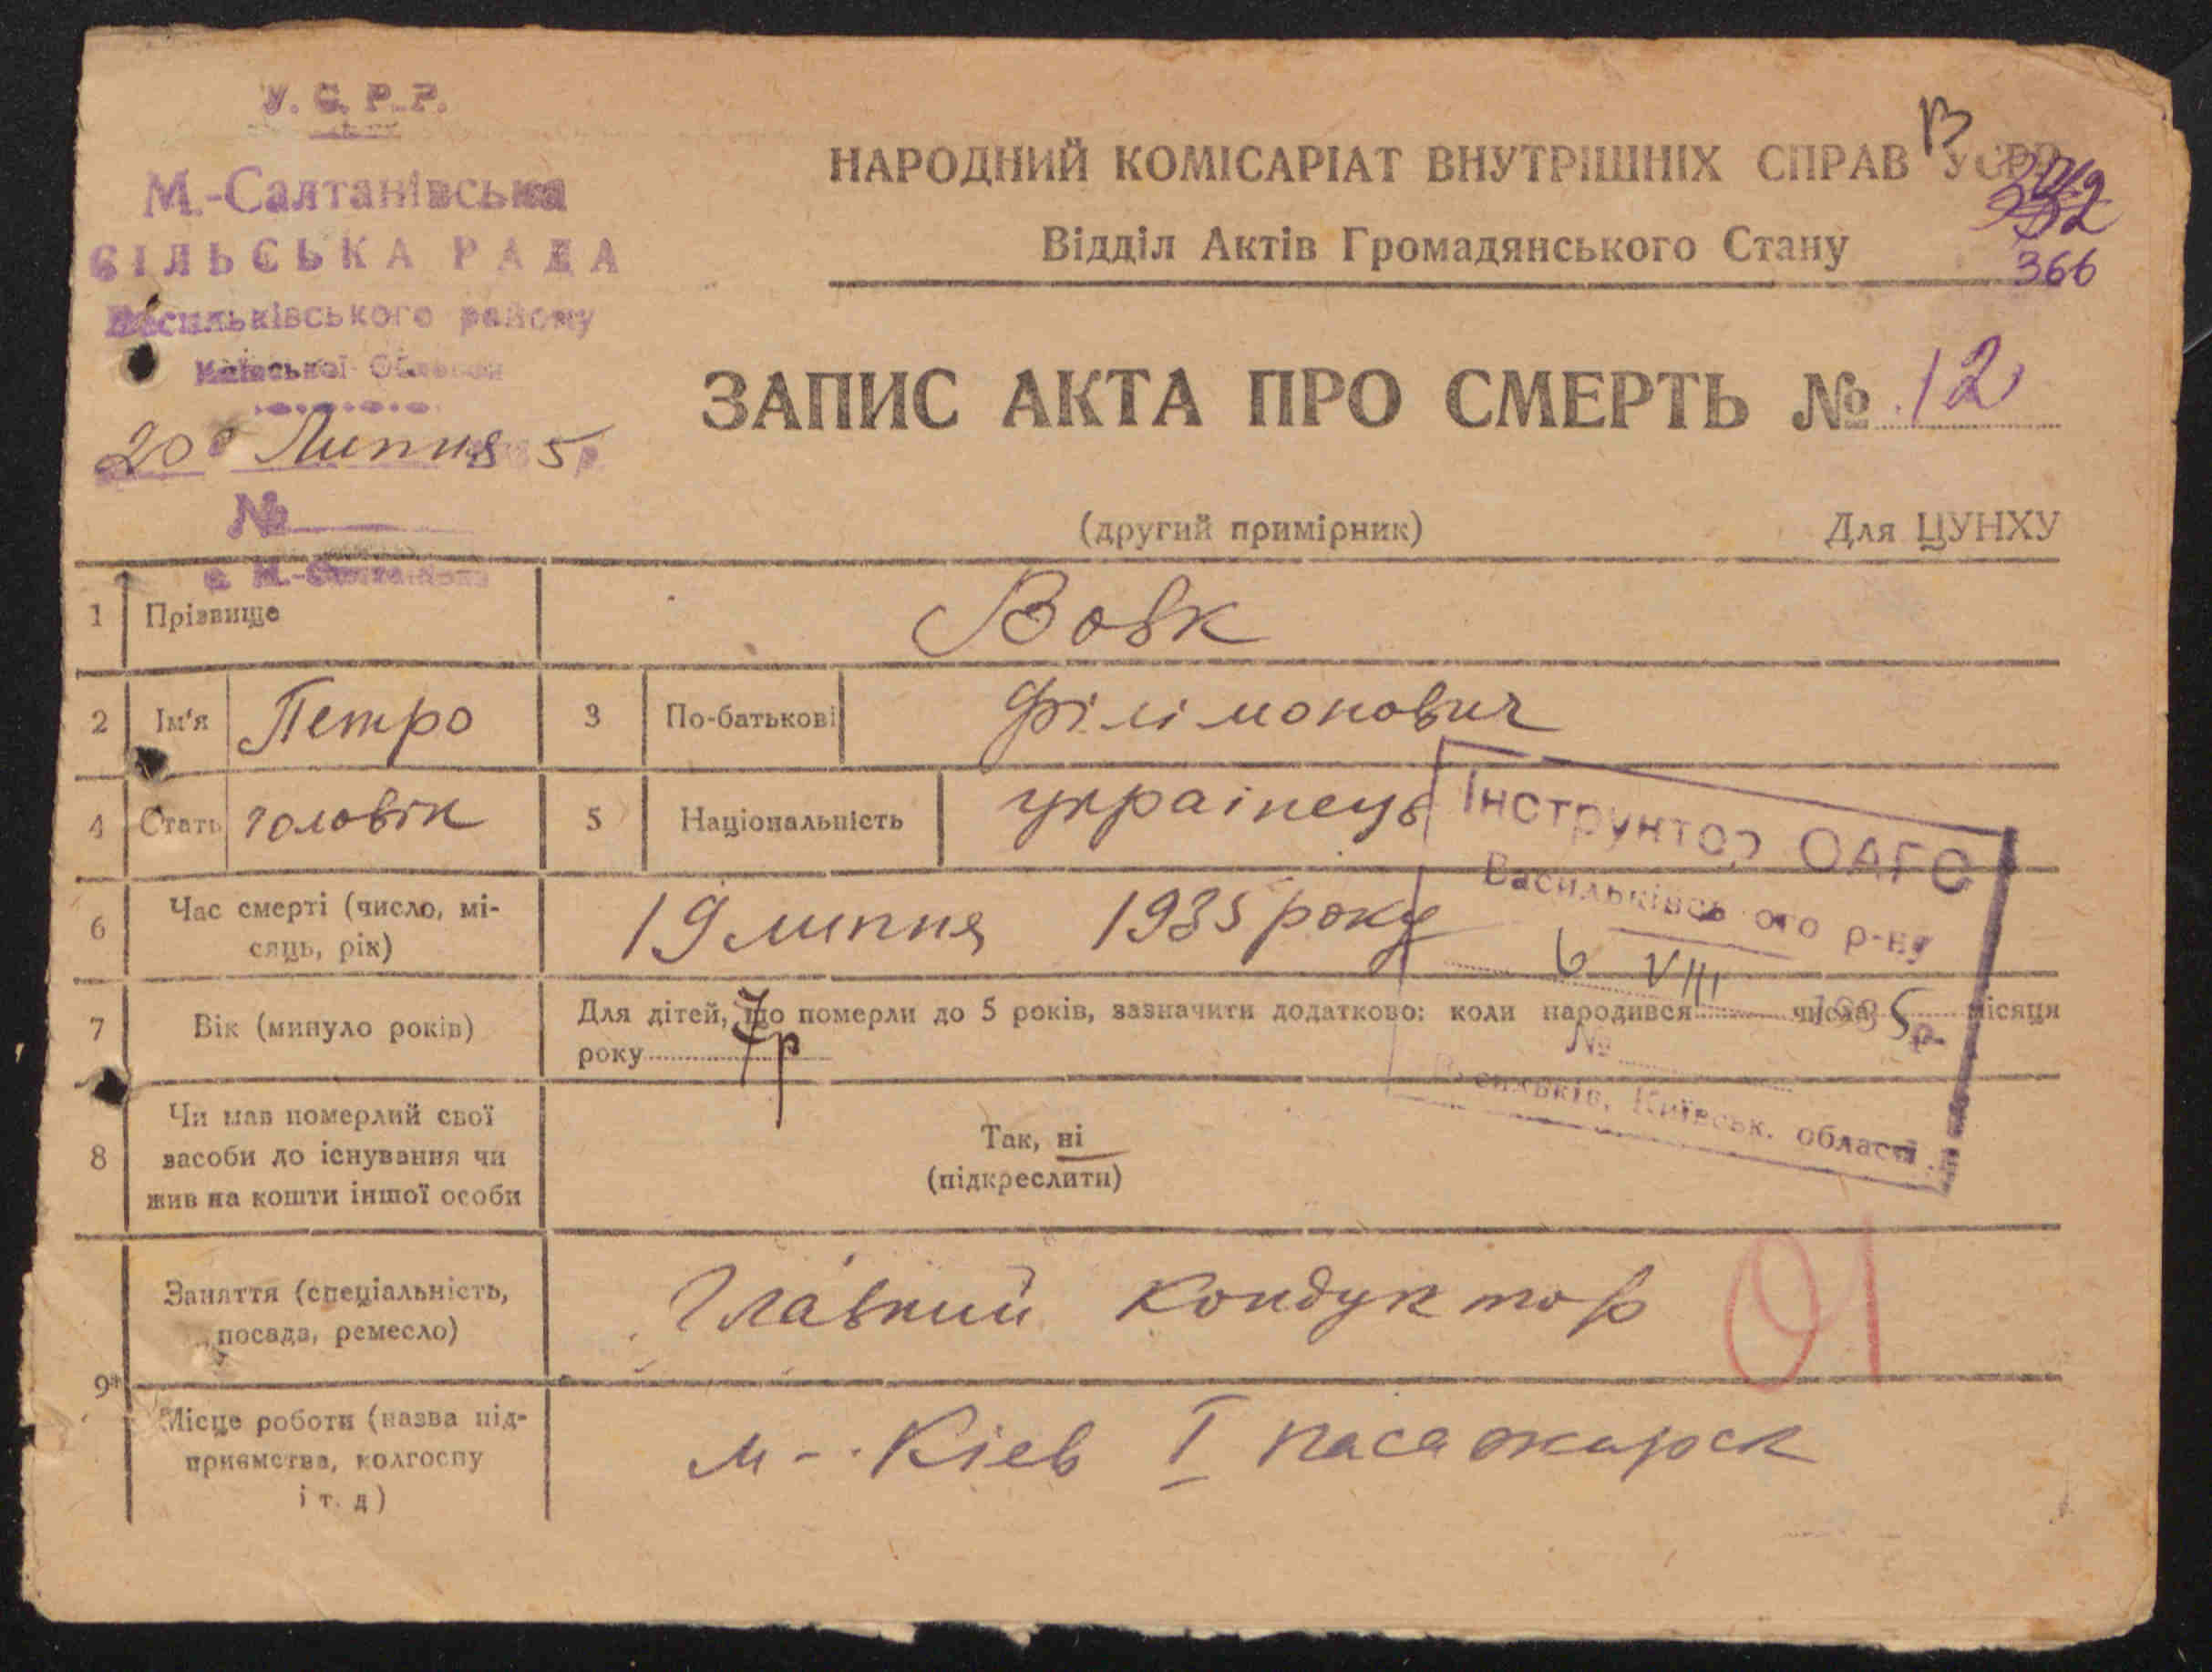 У.С.Р.Р.
М.-Салтанівська
СІЛЬСЬКА РАДА
Васильківського району
Київської Области
20 Липня 5 р.
№
с. М.-Салтанівка
В
НАРОДНИЙ КОМІСАРІАТ ВНУТРІШНІХ СПРАВ УСРР
Відділ Актів Громадянського Стану
366
ЗАПИС АКТА ПРО СМЕРТЬ № 12
(другий примірник) Для ЦУНХУ
1 Прізвище Вовк
2 Ім'я Петро 3 По-батькові Філімонович
4 Стать чоловік 5 Національність українець
Інструктор ОАГС
Васильківського р-ну
6 VIII 1935 р.
№
Васильків, Київськ. області
6 Час смерті (число, мі-
сяць, рік) 19 липня 1935 року
7 Вік (минуло років) 7р Для дітей, що померли до 5 років, зазначити додатково: коли народився числа місяця
року
8 Чи мав померлий свої
засоби до існування чи
жив на кошти іншої особи
Так, ні
(підкреслити)
9 Заняття (спеціальність,
посада, ремесло) Главний кондуктор
01
Місце роботи (назва під-
приємства, колгоспу
і т. д) м-. Кіев I пасажирск